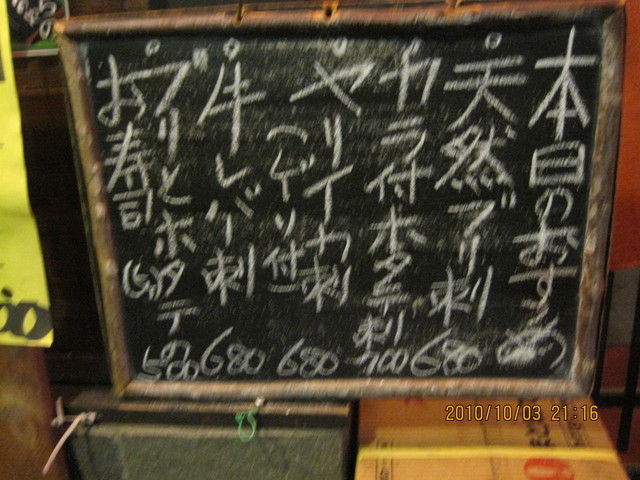 本日のおすすめ
天然ブリ刺 680
カラ付ホタテ刺 700
ヤリイカ刺 (ゲソ付) 680
牛レバー刺 680
ブリとホタテ
お寿司 500
2010/10/03 21:16